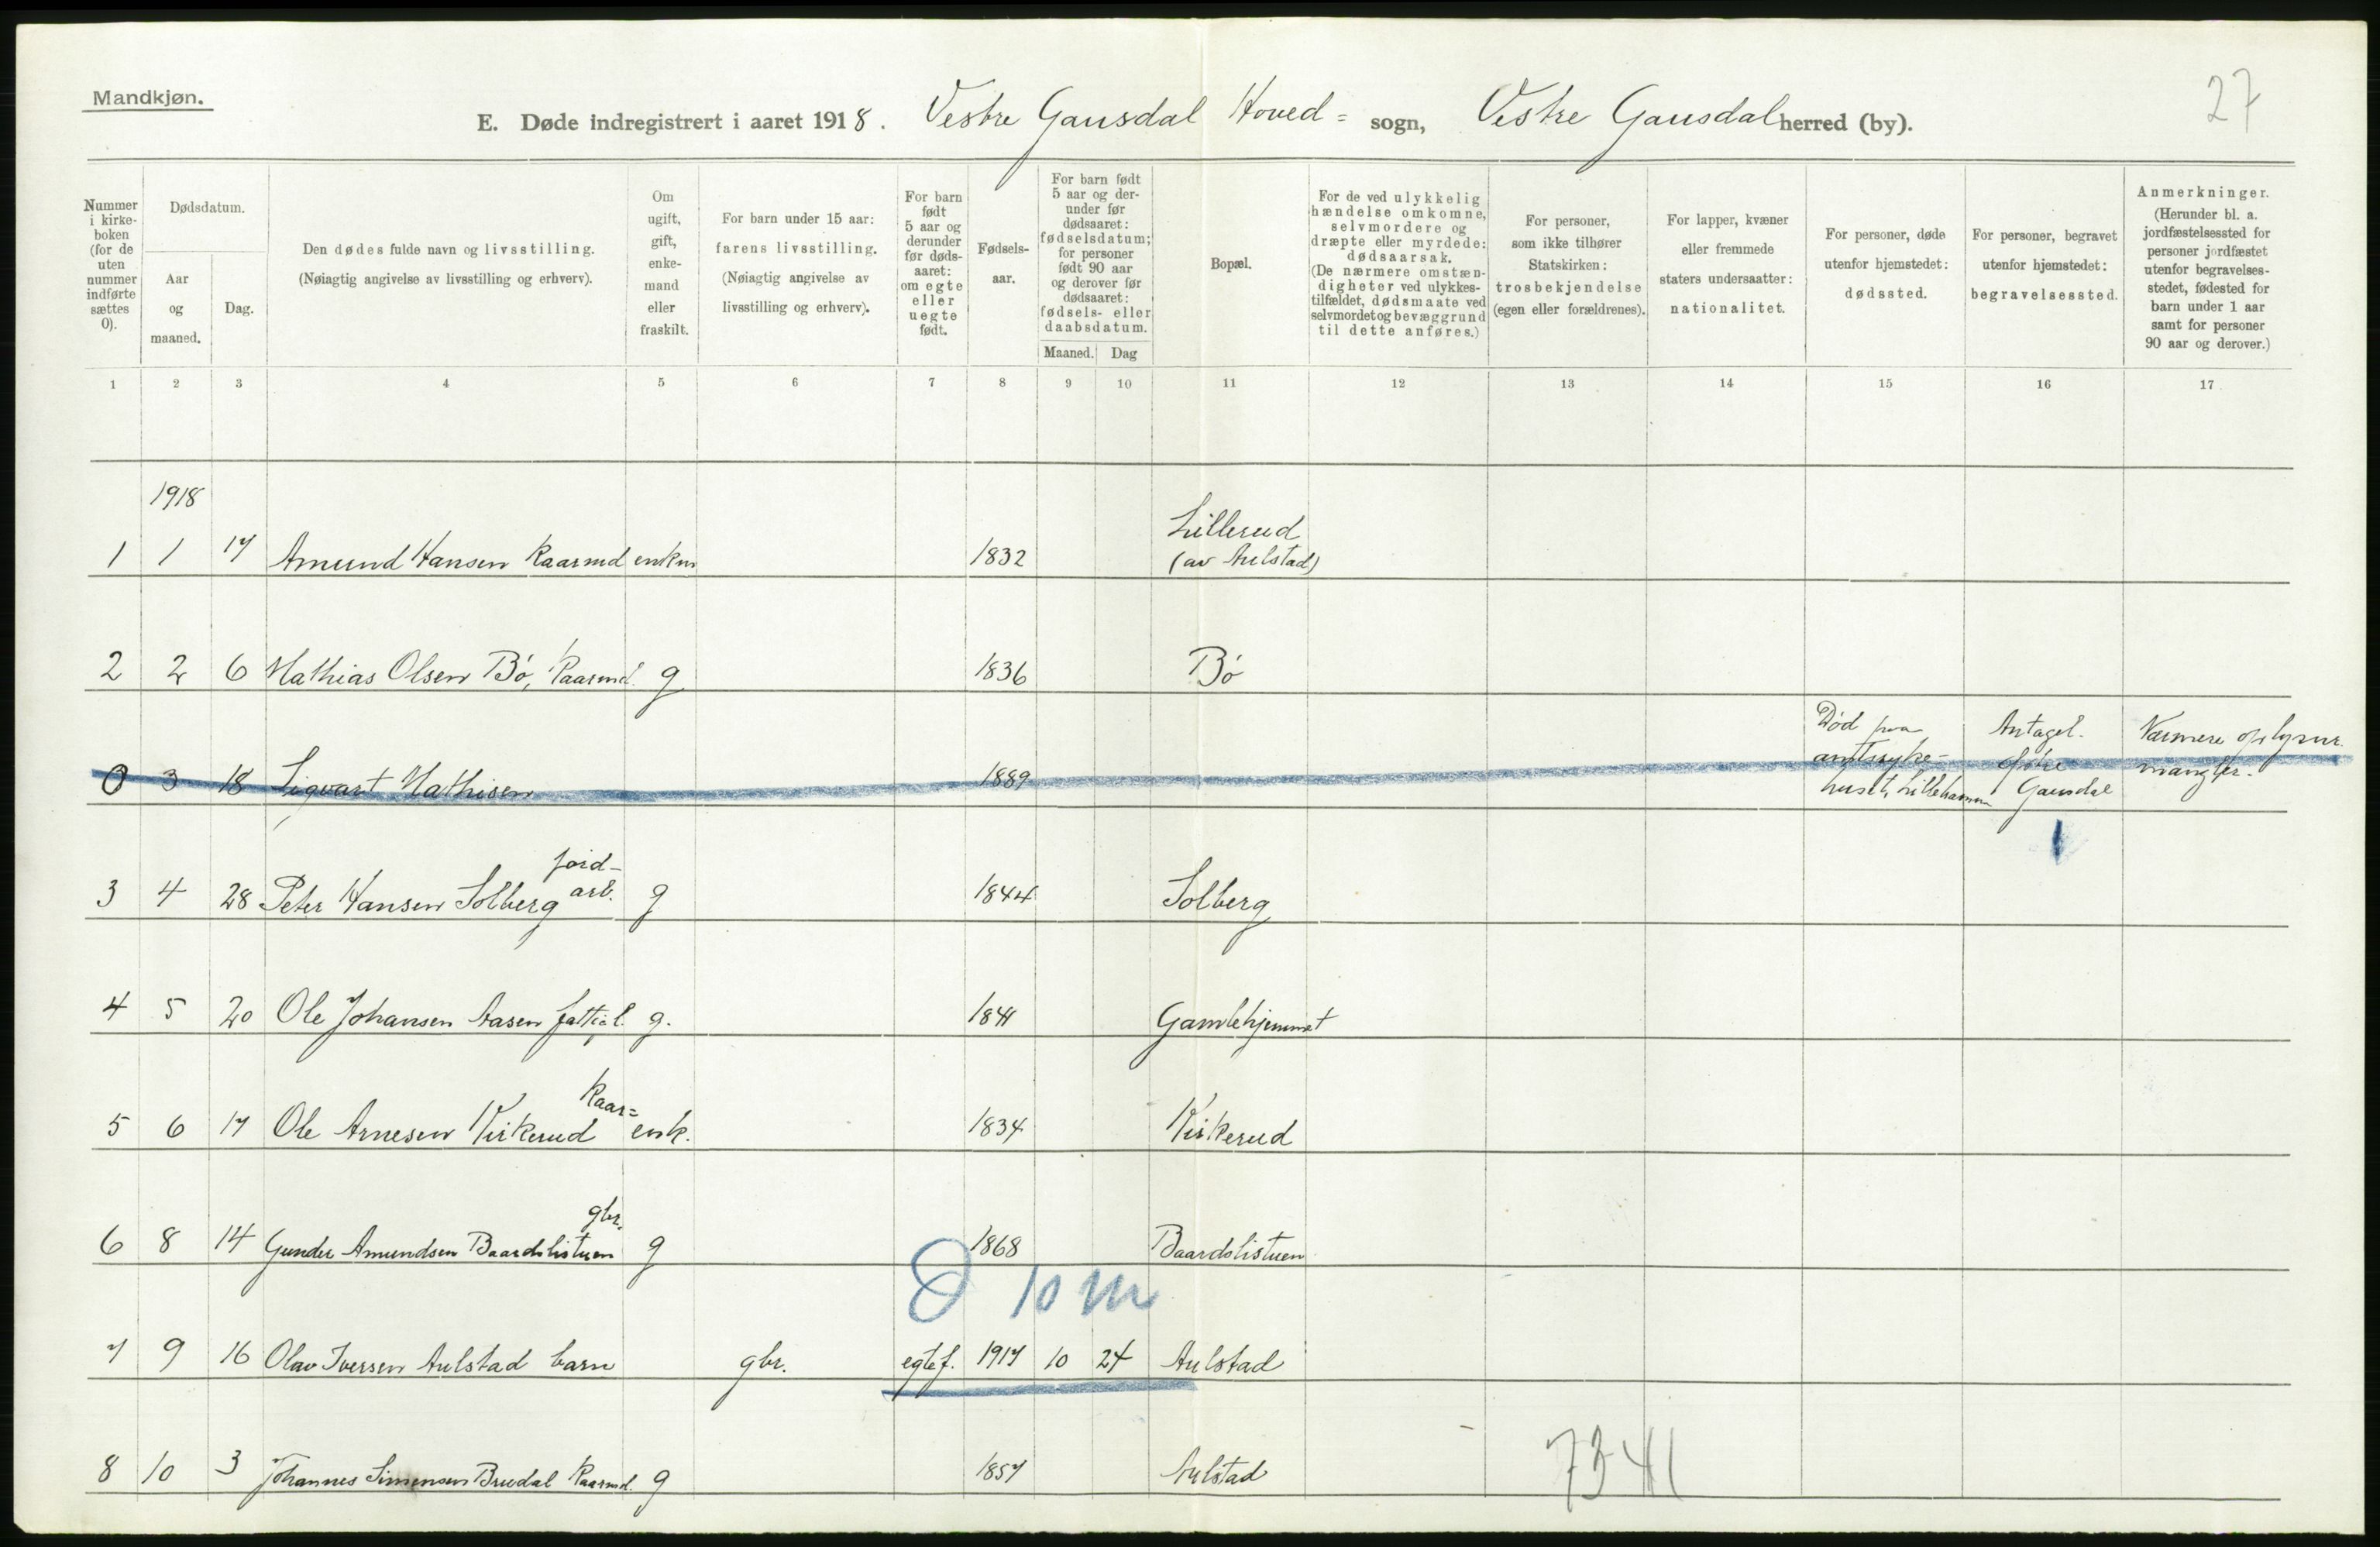 Mandkjøn.
27
E. Døde indregistrert i aaret 1918. Vestre Gausdal Hoved= sogn, Vestre Gausdal herred (by).
Nummer i kirkeboken (for de uten nummer indførte sættes 0).
Dødsdatum.
Aar og maaned.
Dag.
Den dødes fulde navn og livsstilling.
(Nøiagtig angivelse av livsstilling og erhverv).
Om ugift, gift, enkemand eller fraskilt.
For barn under 15 aar: farens livsstilling.
(Nøiagtig angivelse av livsstilling og erhverv).
For barn født 5 aar og derunder før dødsaaret: om egte eller uegte født.
Fødselsaar.
For barn født 5 aar og derunder før dødsaaret: fødselsdatum; for personer født 90 aar og derover før dødsaaret: fødsels- eller daabsdatum.
Maaned. Dag
Bopæl.
For de ved ulykkelig hændelse omkomne, selvmordere og dræpte eller myrdede: dødsaarsak.
(De nærmere omstændigheter ved ulykkestilfældet, dødsmaate ved selvmordet og bevæggrund til dette anføres.)
For personer, som ikke tilhører Statskirken: trosbekjendelse (egen eller forældrenes).
For lapper, kvæner eller fremmede staters undersaatter: nationalitet.
For personer, døde utenfor hjemstedet: dødssted.
For personer, begravet utenfor hjemstedet: begravelsessted.
Anmerkninger.
(Herunder bl. a. jordfæstelsessted for personer jordfæstet utenfor begravelsesstedet, fødested for barn under 1 aar samt for personer 90 aar og derover.)
1 2 3 4 5 6 7 8 9 10 11 12 13 14 15 16 17
1918
1 1 17 Amund Hansen Kaarmd enkm 1832 Lillerud (av Aulstad)
2 2 6 Mathias Olsen Bø, Kaarmd. g 1836 Bø
0 3 18 Sigvart Mathisen 1889 Død paa amtssyke-huset, Lillehammer Antagel. Østre Gausdal Nærmere oplysn. mangler.
3 4 28 Peter Hansen Solberg jord-arb. g 1844 Solberg
4 5 20 Ole Johansen Aasen fattigl. g. 1841 Gamlehjemmet
5 6 17 Ole Arnesen Kirkerud Kaar= enk. 1834 Kirkerud
6 8 14 Gunder Amundsen Baardslistuen gbr. g 1868 Baardslistuen
10 m
7 9 16 Olav Iversen Aulstad barn gbr. egtef. 1917 10 24 Aulstad
8 10 3 Johannes Simensen Bredal Kaarmd. g 1857 Aulstad
7341